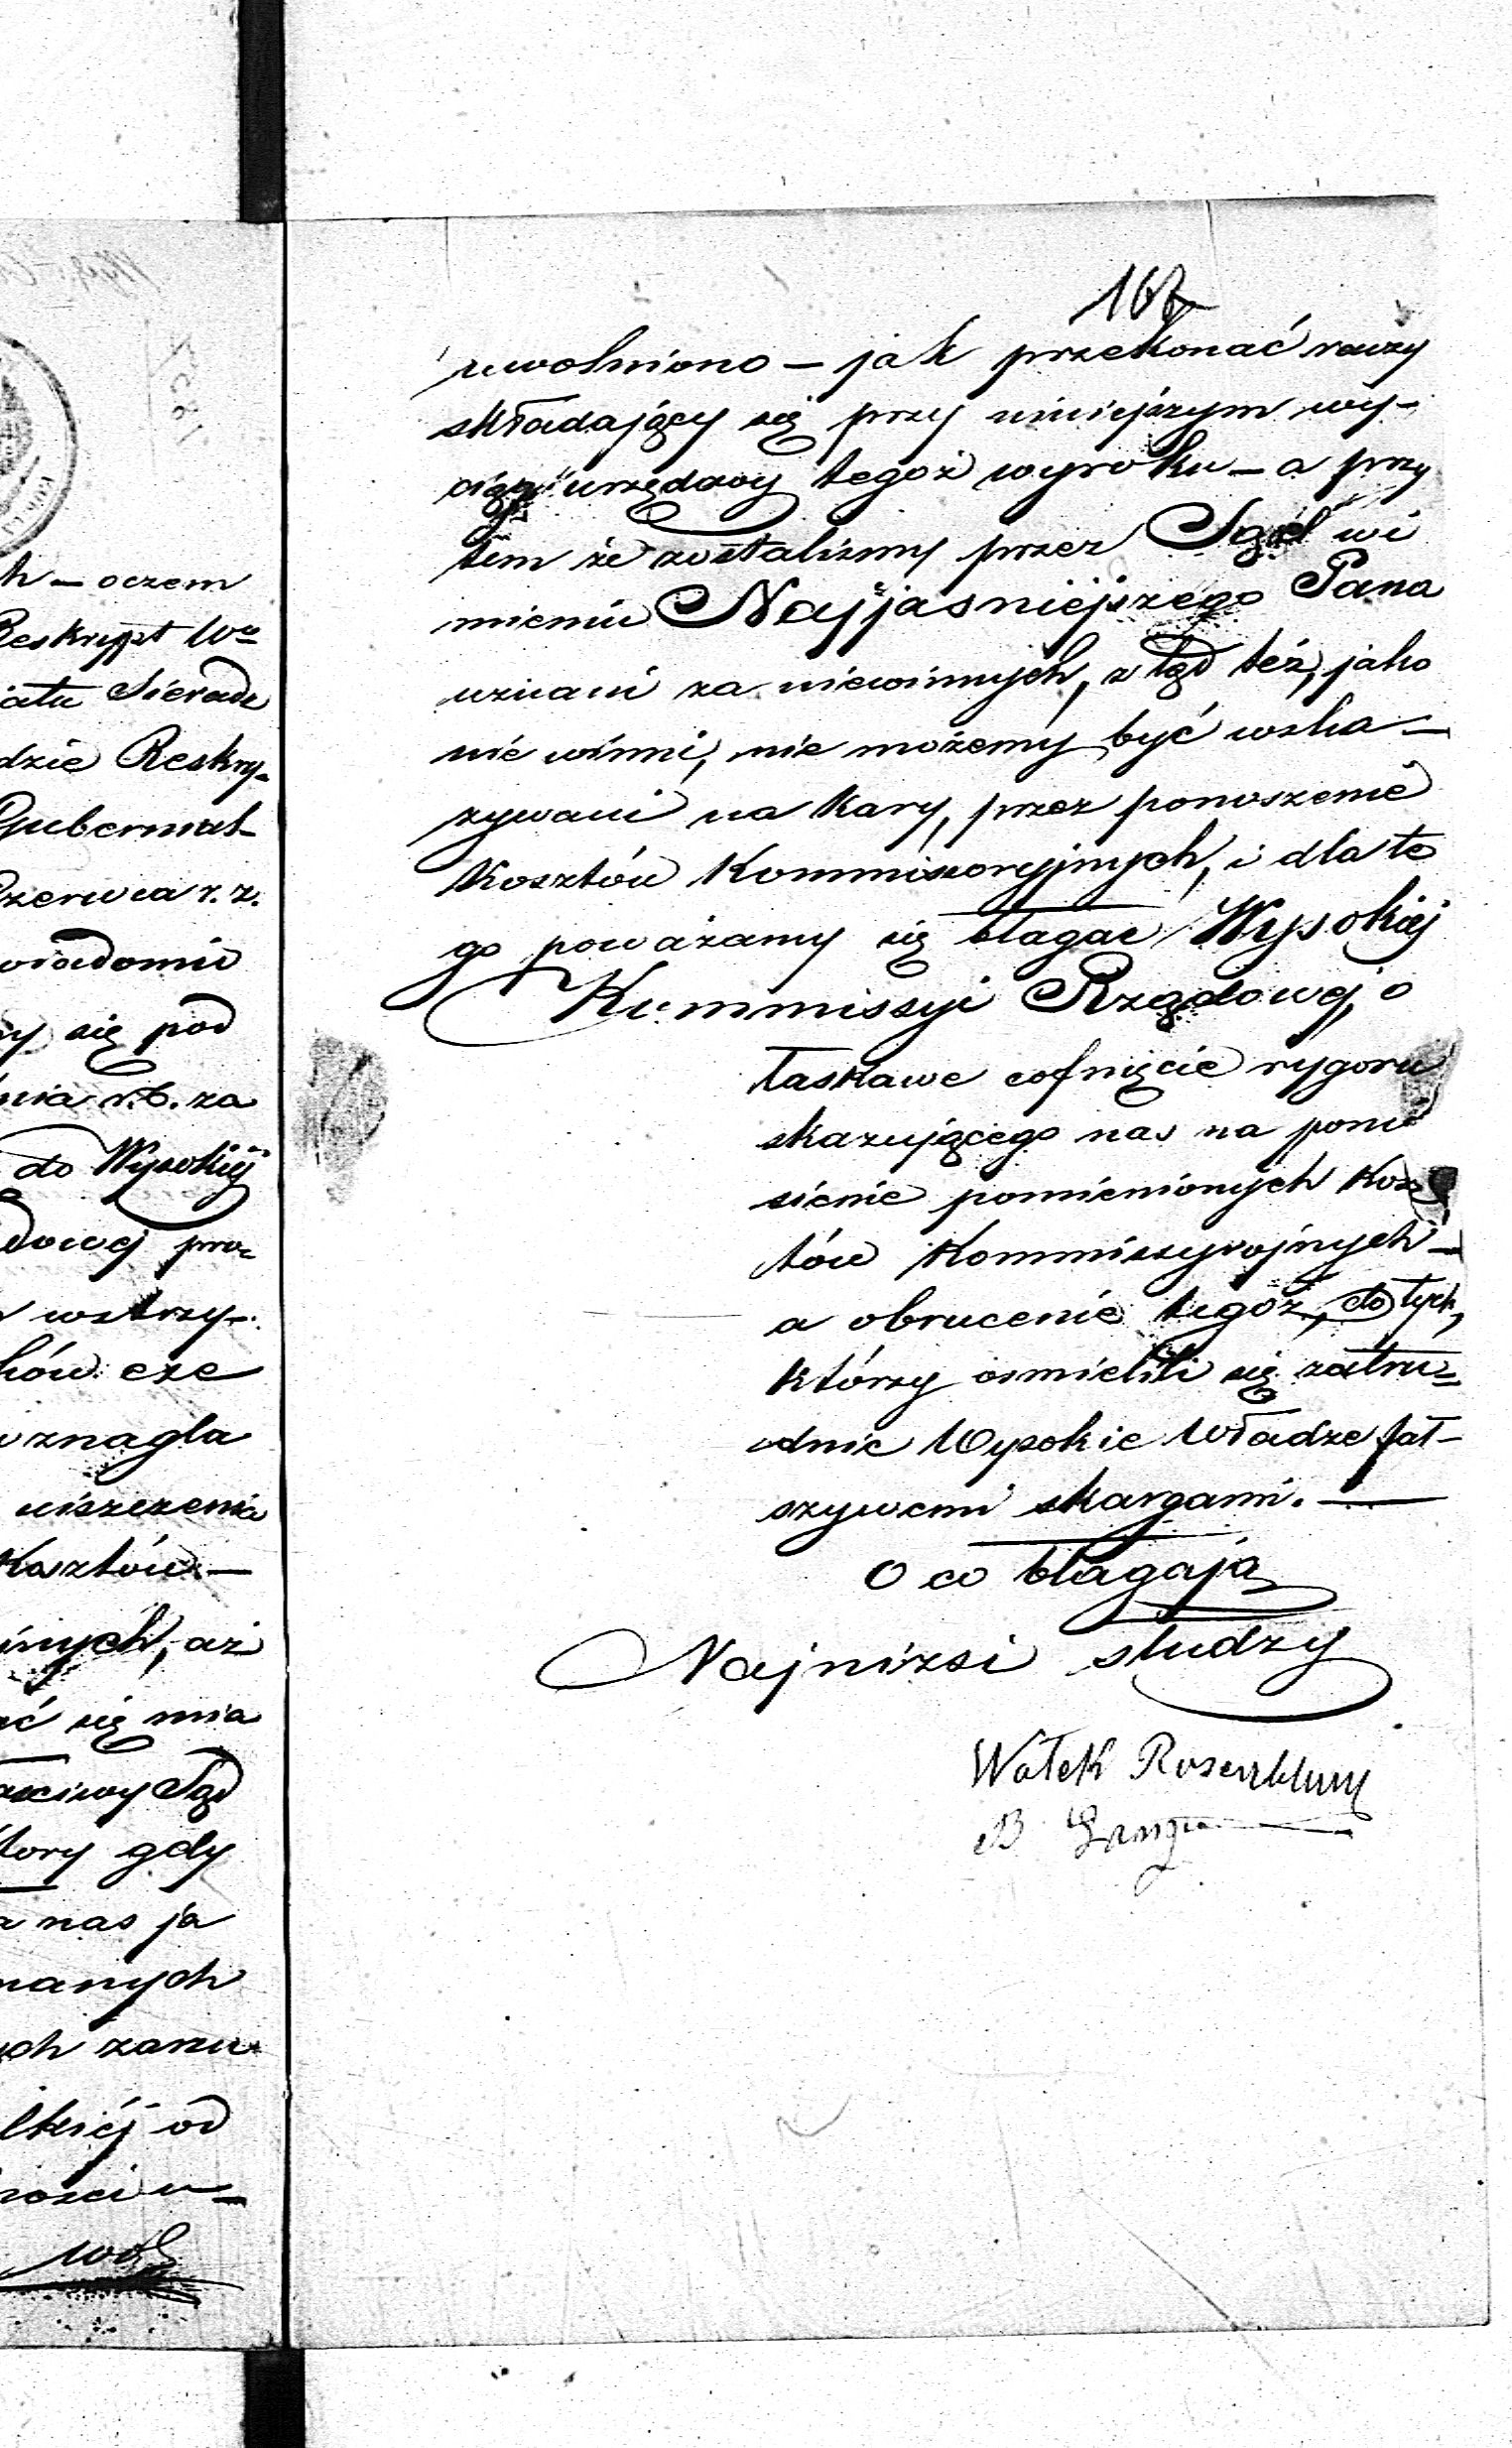 h – oczem
Reskrypt Wo
iatu Sieradz
dzie Reskry-
Gubernial-
Czerwca r. z.
wiadomie
ny się pod
nia r.b. za
do Wysokiéj
dowej pro-
wstrzy-
ków cze
znagla
uiszczenia
Kosztów –
jnych, aż
ać się mia
aściwy Sąd
tóry gdy
a nas ja
nanych
ych zanu
lkiéj od
ności u-
wol
167
uwolniono – jak przekonać raczy
składający się przy niniejszym wy-
ciąg urzędowy tegoż wyroku – a przy
tem że zostalismy przez Sąd w i
mieniu Najjasniejszego Pana
uznani za niewinnych, z tąd też, jako
nie winni, nie możemy być wska-
zywani na Kary, przez ponoszenie
Kosztów Kommissoryjnych, i dla te
go poważamy się błagac Wysokiéj
Kommissyi Rządowej o
łaskawe cofnięcie rygoru
skazującego nas na ponie
sienie pomienionych Kosz
tów Kommissyrojnych –
a obrucenie tegoż, do tych,
którzy osmielili się zatru-
dnic Wysokie Władze fał-
szywemi skargami. –
O co błagają
Najniżsi słudzy
Wołek Rosenblum
B Lang